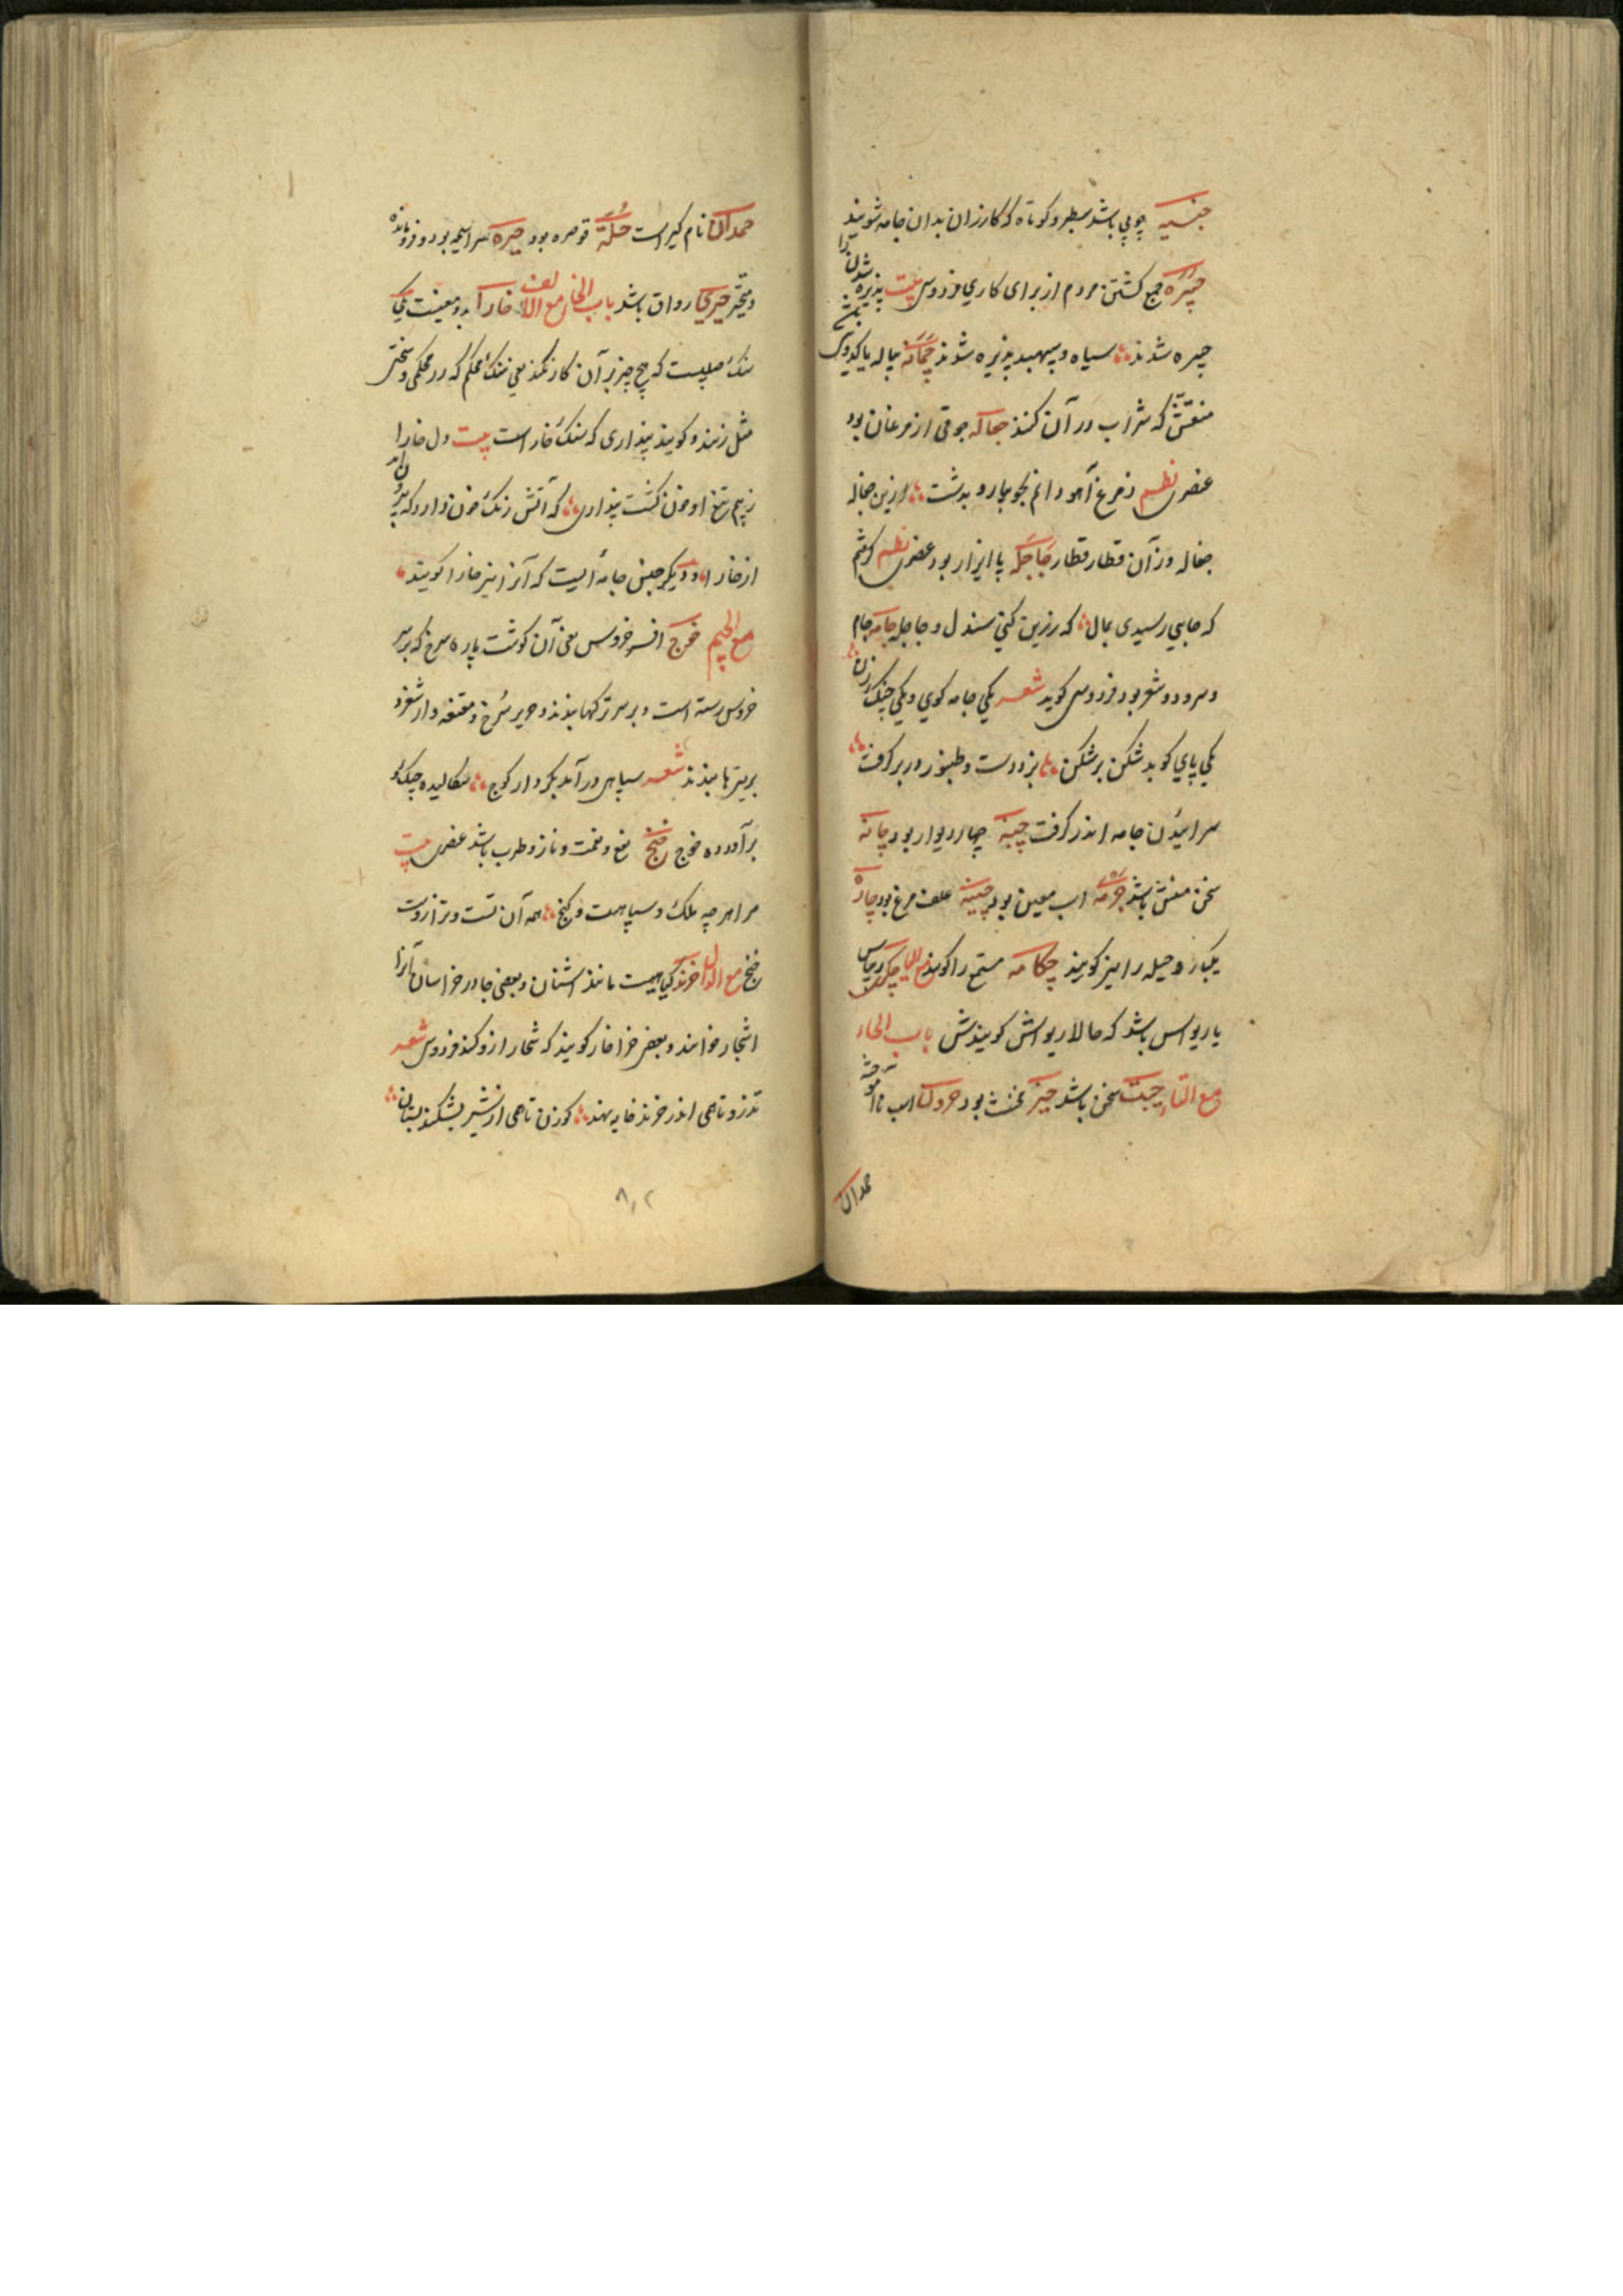 چوبی باشد سطبر و کوتاه که کازران بدان جامه شویند
چپیره جمع کشتن مردم از برای کاری فردوسی بیت پذیره شدن را
چپیره شدند سپاه و سپهبد پذیره شدند چمانه پیاله یا کدوی
منقش که شراب در آن کنند جغاله جوقی از مرغان بود
عنصری نظم ز مرغ و آهو رانم بجویبار و بدشت ازین جغاله
جغاله وزآن قطار قطار جاجله پا افزار بود عنصری نظم گرفتم
که جایی رسیدی بمال که زرین کنی سندل و جاجله جامه جام
و سرود و شعر بود فردوسی کوید شعر یکی جامه کوی و یکی چنک زن
یکی پای کوبد شکن برشکن بزد دست و طنبور در بر کرفت
سراییدن جامه اندر کرفت چینه چهار دیوار بود چانه
سخن باشد چرمه اسب معین بود چینه علف مرغ بود چاره
یکبار و حیله را نیز کویند چکامه را کویند مع الیا چکری ریباس
یا ریواس باشد که حالا ریواش کویندش باب الحاء
مع التاء سخن باشد حیز مخنث بود اسب ناآموخته
حمدان
حمدان نام کیر است حله قوصره بود حیره سراسیمه بود و فرومانده
و متحیر حیری رواق باشد باب الخا مع الالف خارا بدو معنیست یکی
سنک صلبست که هیچ چیز بر آن کار نکند یعنی سنک محکم که در محکمی و سختی
مثل زنند و کویند پنداری که سنک خاراست بیت دل خارا
ز بیم تیغ او خون کشت پنداری که آتش رنک خون دارد که بیرون آید
از خارا و دیکر جنس جامه ایست که آنرا نیز خارا کویند
مع الجیم خوج افسر خروس یعنی آن کوشت پاره سرخ که بر سر
خروس رسته است و بر سر ترکها بندند و حریر سرخ و مقنعه وار شعرد
بر نیزها بندند شعر سپاهی درآمد بکردار کوج سکالیده جنک و
برآورده خوج خنج نفع و نعمت و ناز و طرب باشد عنصری بیت
مرا هرچه ملک و سپاهست و کنج همه آن تست و ترا زوست
خنج مع الدال خرند کیاهیست مانند اشنان و بعضی جا در خراسان آنرا
اشجار خوانند و بعضی کویند که شخار ازو کنند فردوسی شعر
تذرو تا همی اندر خرند خایه نهد کوزن تا همی از شیر بشکند پستان
۸۰۲